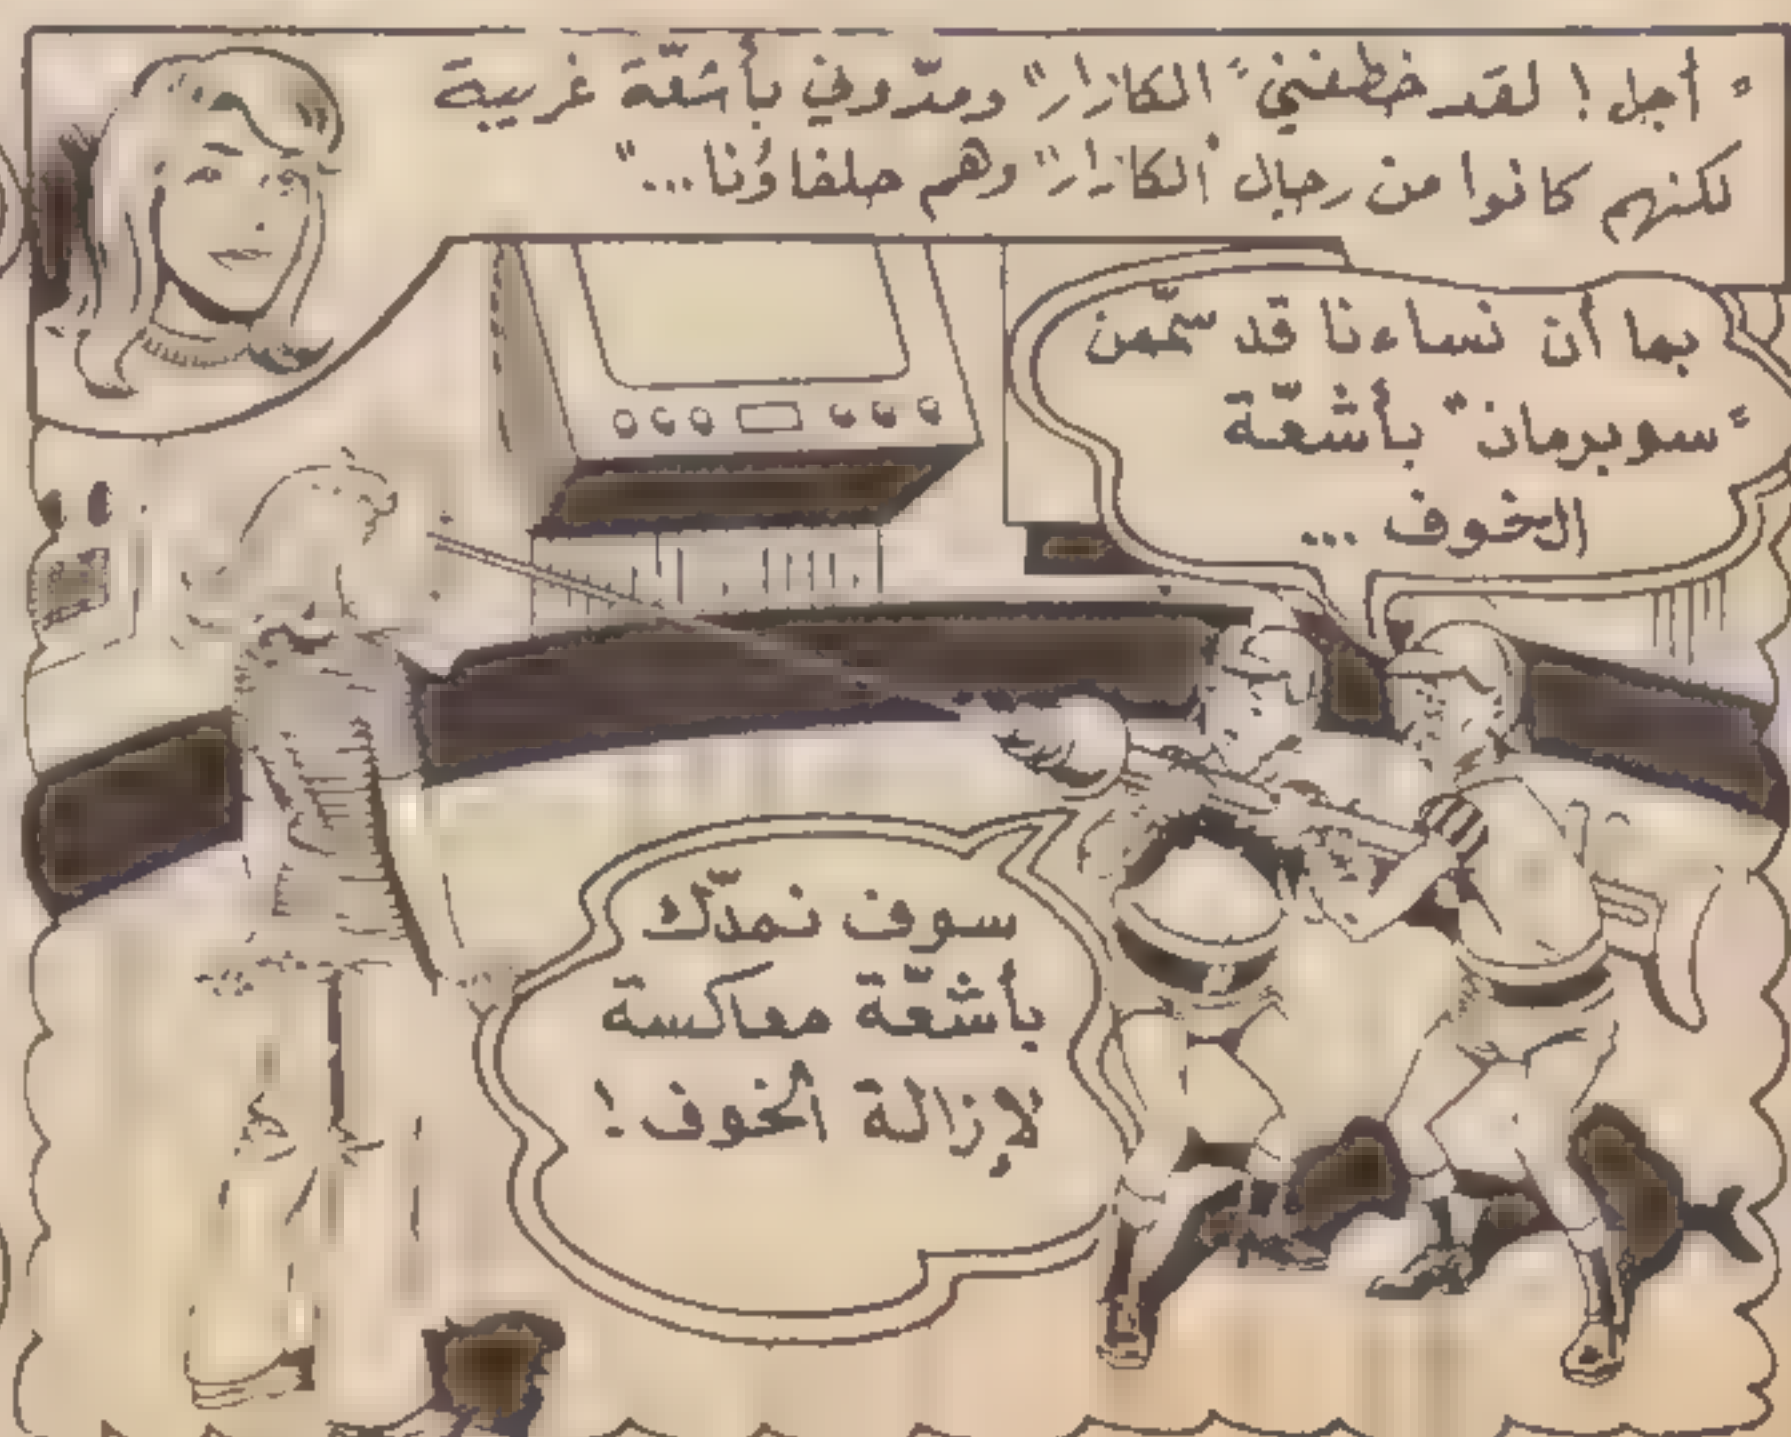 "أجل! لقد خطفني "الكازار" ومدّوني بأشعّة غريبة
لكنهم كانوا من رجال "الكازار" وهم حلفاؤنا..."
بما أن نساءنا قد سمّمن
"سوبرمان" بأشعّة
الخوف ...
سوف نمدّك
بأشعّة معاكسة
لإزالة الخوف!